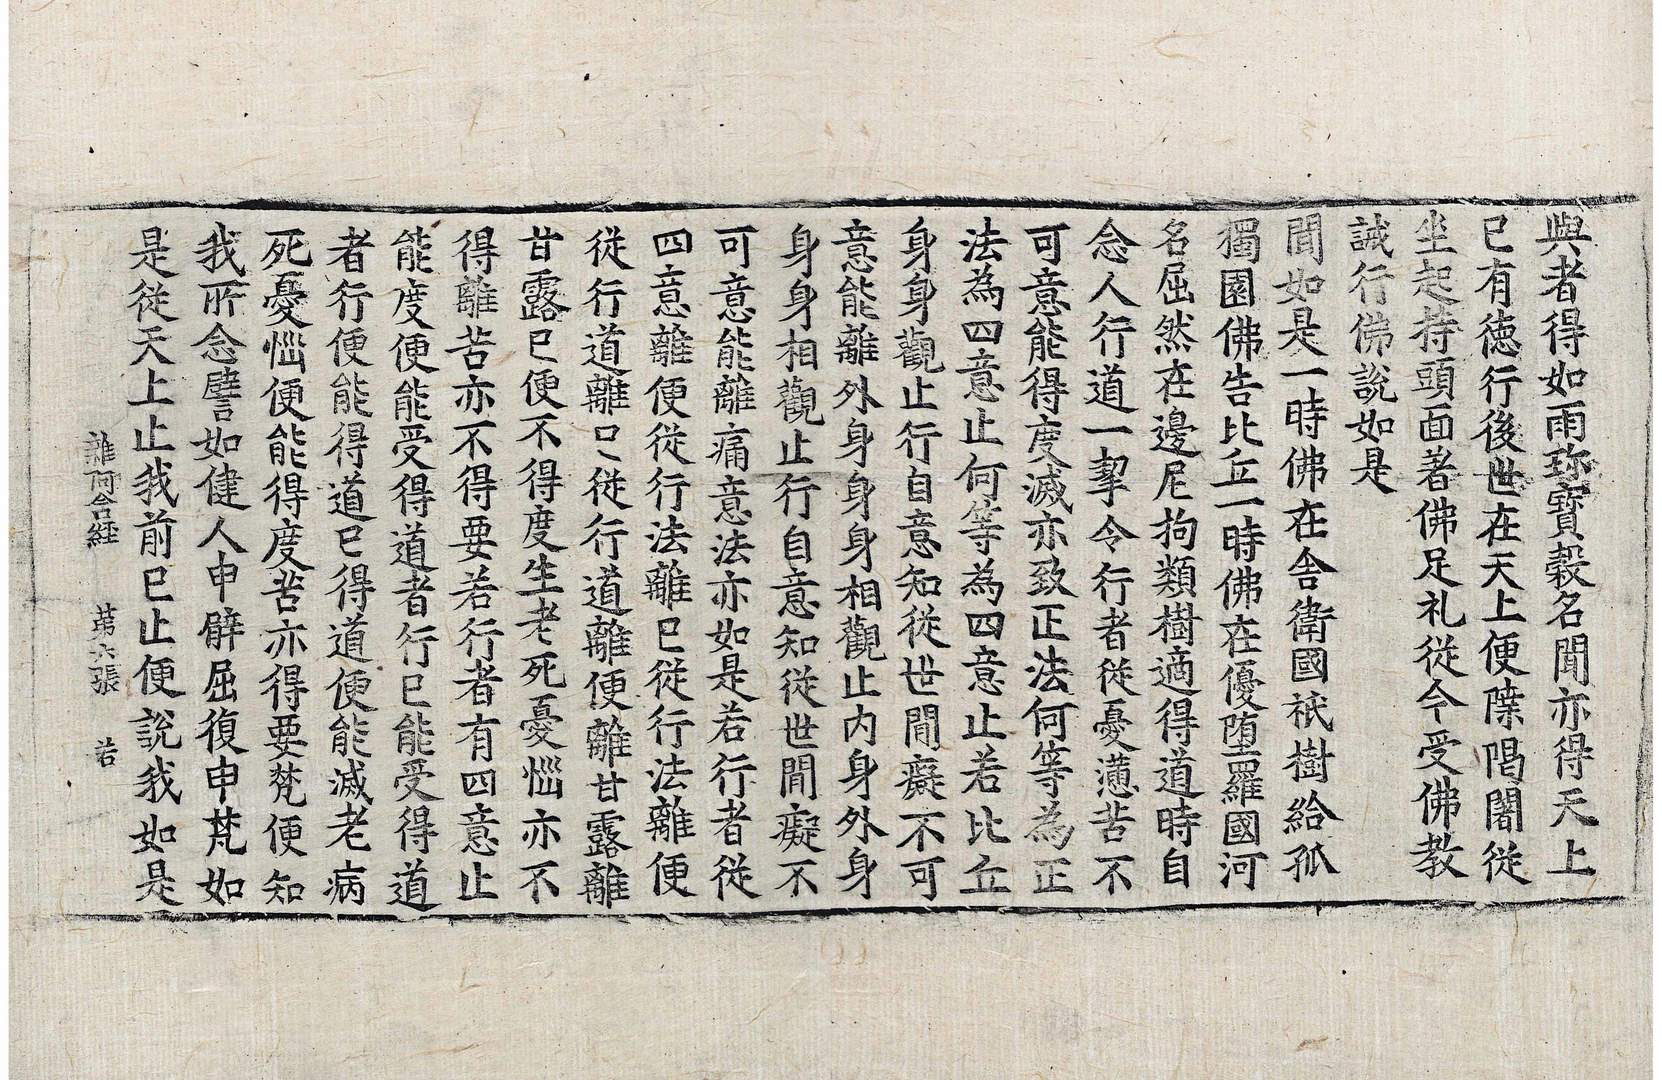 與者得如雨珎寶穀名聞亦得天上
已有徳行後世在天上便䧟閤從
坐起持頭面著佛足礼從今受佛教
誡行佛說如是
聞如是一時佛在舎衛國祇樹給孤
獨園佛告比丘一時佛在優墮羅國河
名屈然在邊尼拘類樹適得道時自
念人行道一挈令行者從憂懣苦不
可意能得度滅亦致正法何等為正
法為四意止何等為四意止若比丘
身身觀止行自意知從世間癡不可
意能離外身身身相觀止内身外身
身身相觀止行自意知從世間癡不
可意能離痛意法亦如是若行者從
四意離便從行法離已從行法離便
從行道離已從行道離便離甘露離
甘露已便不得度生老死憂惱亦不
得離苦亦不得要若行者有四意止
能度便能受得道者行已能受得道
者行便能得道已得道便能滅老病
死憂惱便能得度苦亦得要梵便知
我所念譬如健人申臂屈復申梵如
是從天上止我前已止便說我如是
雜阿含経 苐六張 若